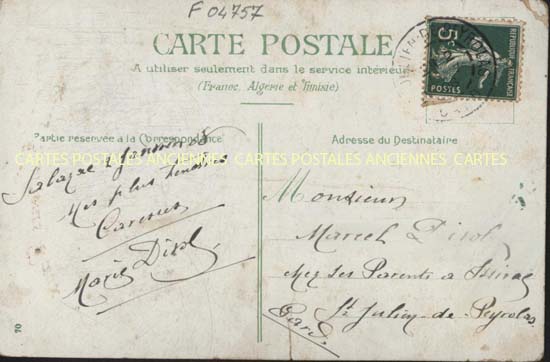 F 04757
CARTE POSTALE
A utiliser seulement dans le service intérieur
(France, Algerie et Tunisie)
REPUBLIQUE FRANÇAISE
5c
POSTES
Partie reservée a la Correspondance
Adresse du Destinataire
CARTES POSTALES ANCIENNES CARTES POSTALES ANCIENNES CARTES
Mes plus
Caresses
Marie
Monsieur
Marcel
chez ses Parents a
St Julien-de-Peyrolas
Gard
70